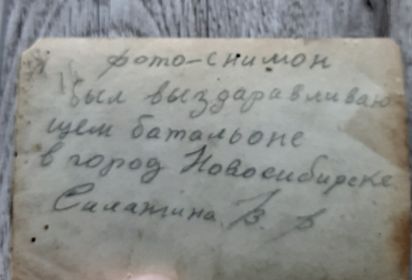 фото-снимон
был выздаравливаю
щем батальоне
в город Новосибирске
Силатина В. р